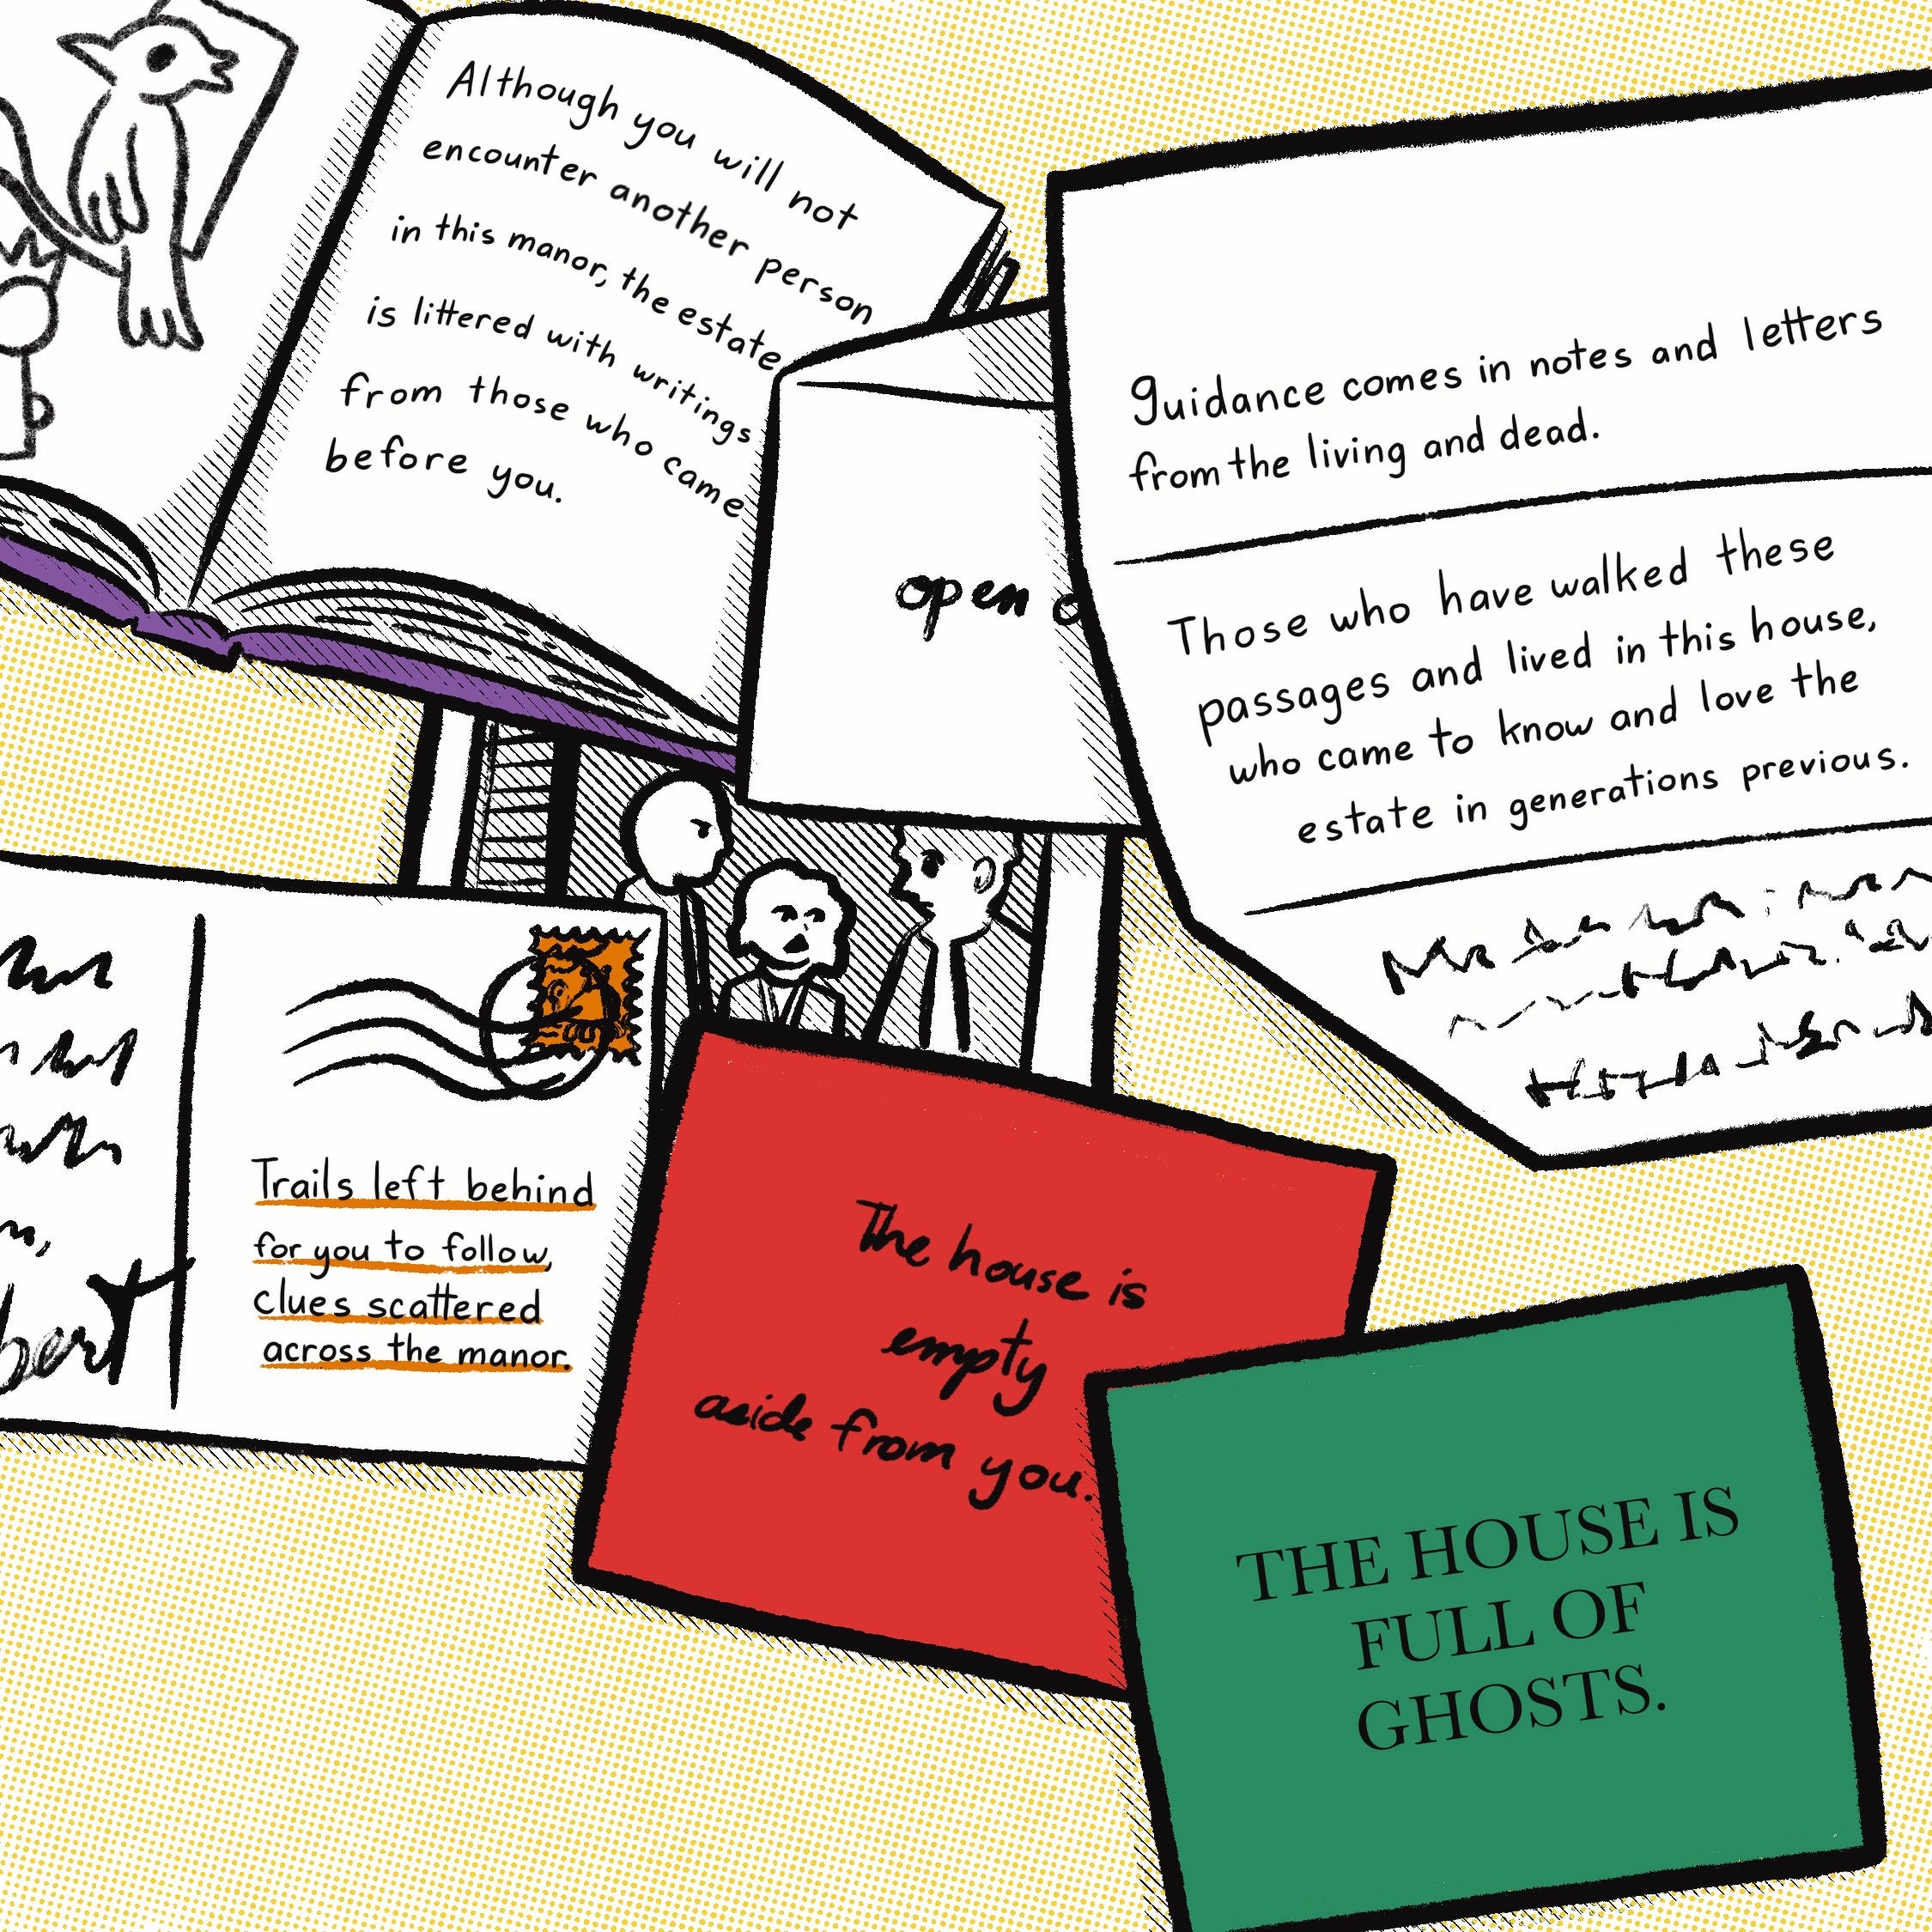 Although you will not
encounter another person
in this manor, the estate
is littered with writings
from those who came
before you.
open
guidance comes in notes and letters
from the living and dead.
Those who have walked these
passages and lived in this house,
who came to know and love the
estate in generations previous.
Trails left behind
for you to follow,
clues scattered
across the manor.
The house is
empty
aside from you.
THE HOUSE IS
FULL OF
GHOSTS.